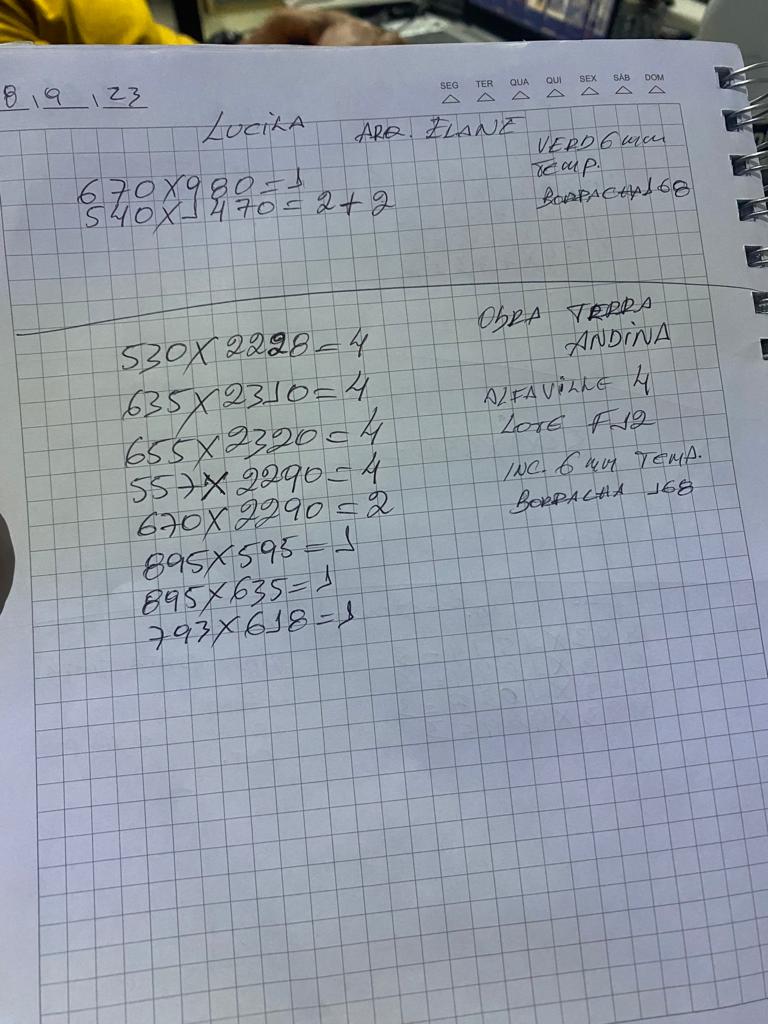 8,9,23
SEG TER QUA QUI SEX SÁB DOM
LUCILA ARQ. ELANE
VERD 6 mm
TEMP.
BORRACHA 168
670X980=1
540X1470=2+2
OBRA TERRA
ANDINA
530X2228=4
635X2310=4
655X2320=4
557X2290=4
670X2290=2
895X595=1
895X635=1
793X618=1
ALFAVILLE 4
LOTE F12
INC. 6 mm TEMP.
BORRACHA 168